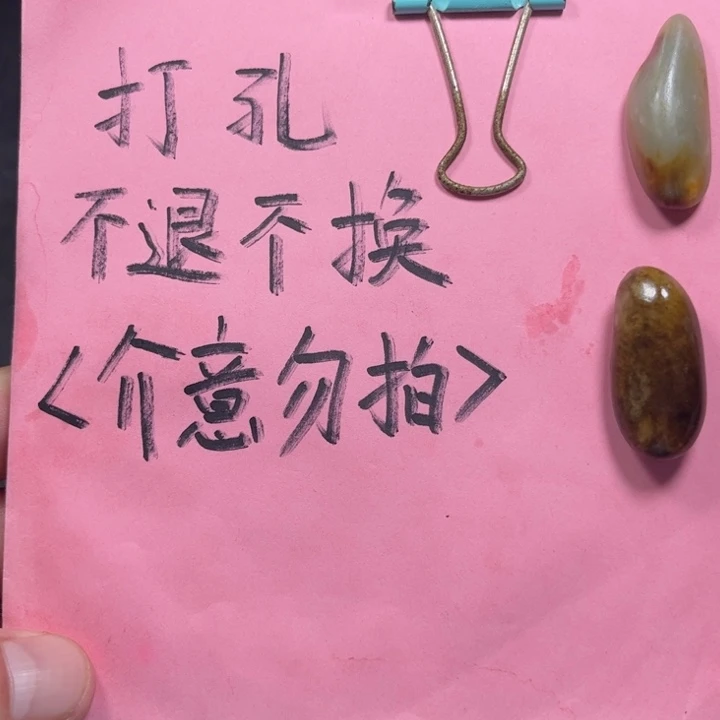 打孔
不退不换
<介意勿拍>